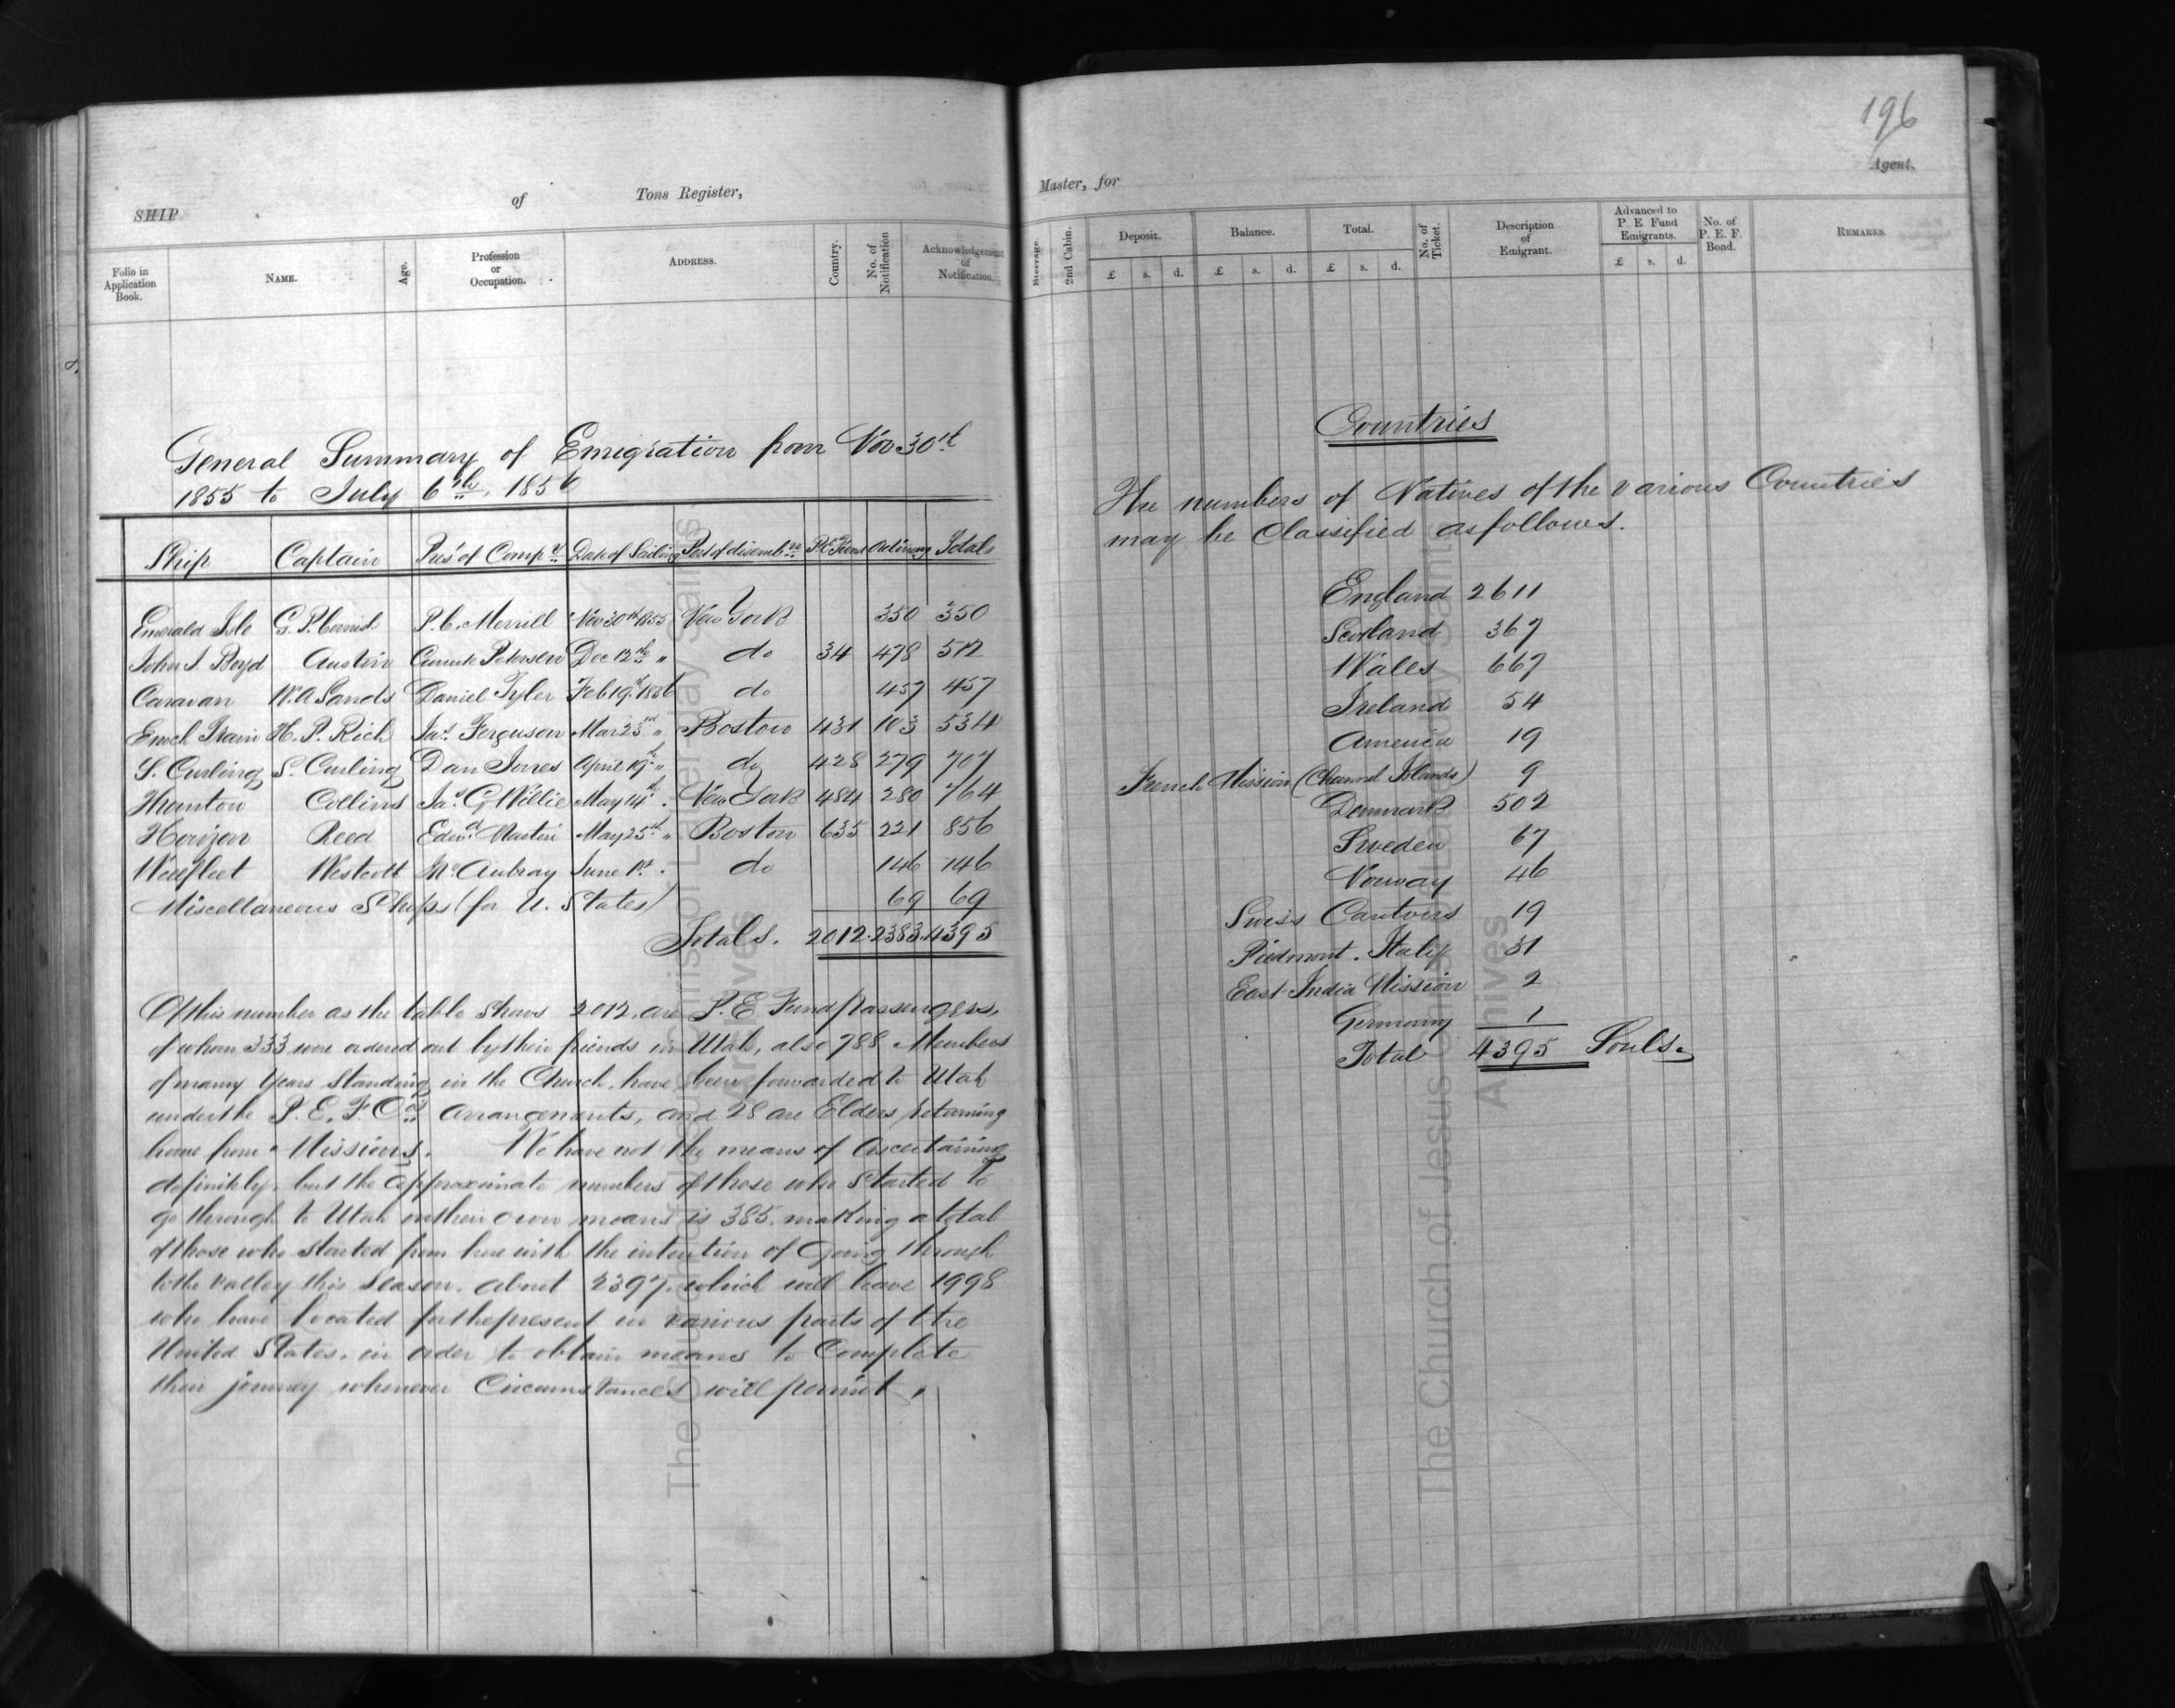 SHIP of Tons Register,
Folio in Application Book. NAME. Age. Profession or Occupation. ADDRESS. Country. No. of Notification Acknowledgement of Notification.
General Summary of Emigration from Nov 30th
1855 to July 6th, 1856
Ship Captain Pres't of Compy Date of Sailing Port of disembn P.E. Fund Ordinary Totals
Emerald Isle G. P. Cornish P. C. Merrill Nov 30th 1855 New York 350 350
John J. Boyd Austin Canute Petersen Dec 12th " do 34 478 512
Caravan W. A Sands Daniel Tyler Feb 19th 1856 do 457 457
Enoch Train H. P. Rich Jas. Ferguson Mar 23rd " Boston 431 103 534
S. Curling S. Curling Dan Jones April 19th " do 428 279 707
Thornton Collins Jas. G Willie May 14th . New York 484 280 764
Horizon Reed Edwd Martin May 25th " Boston 635 221 856
Wellfleet Westcott Jno Aubray June 1st . do 146 146
Miscellaneous Ships (for U. States) 69 69
Totals. 2012. 2383. 4395
Of this number as the table Shows 2012, are P. E Fund passengers,
of whom 333 were ordered out by their friends in Utah, also 788 Members
of many Years Standing in the Church, have been forwarded to Utah
under the P. E. F. Co's arrangements, and 28 are Elders returning
home from Missions. We have not the means of Ascertaining
definitely, but the approximate numbers of those who Started to
go through to Utah on their own means is 385. making a total
of those who started from here with the intention of Going through
to the Valley this Season. about 2397, which will leave 1998
who have located for the present in various parts of the
United States, in order to obtain means to Complete
their journey whenever Circumstances will permit.
196
Master, for Agent.
Steerage. 2nd Cabin. Deposit. Balance. Total. No. of Ticket. Description of Emigrant. Advanced to P. E. Fund Emigrants. No. of P. E. F. Bond. REMARKS.
£ s. d. £ s. d. £ s. d. £ s. d.
Countries
The numbers of Natives of the various Countries
may be Classified as follows.
England 2611
Scotland 367
Wales 667
Ireland 54
America 19
French Mission (Channel Islands) 9
Denmark 502
Sweden 67
Norway 46
Swiss Cantons 19
Piedmont. Italy 31
East-India Mission 2
Germany 1
Total 4395 Souls.